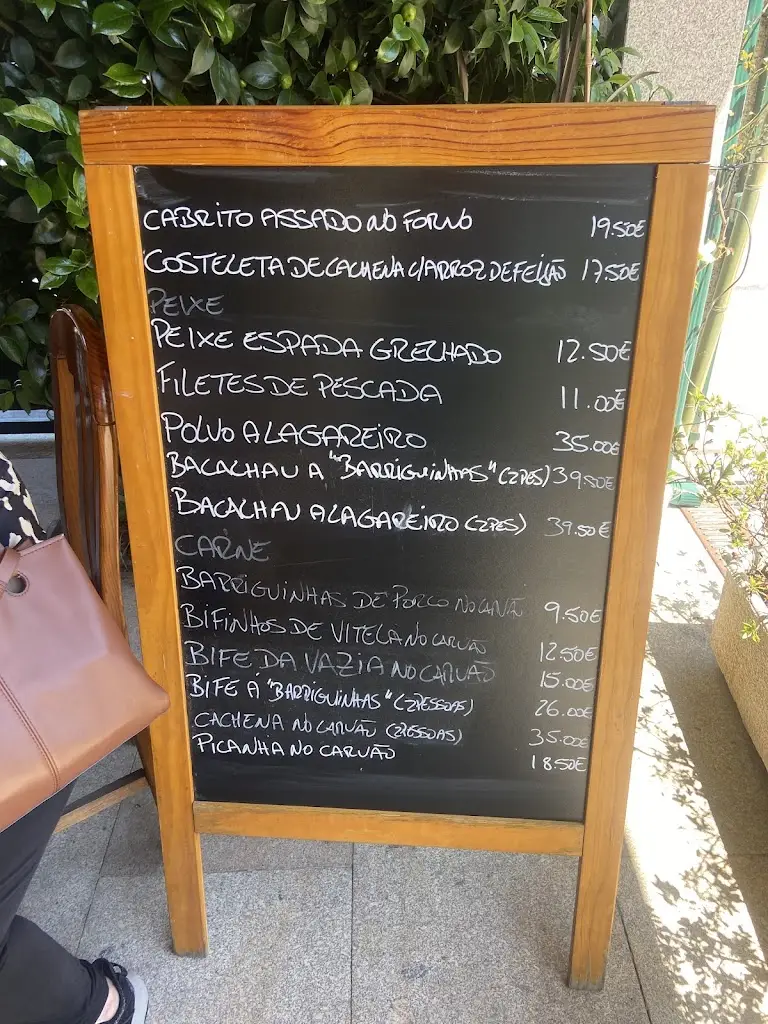 CABRITO ASSADO NO FORNO 19.50€
COSTELETA DE CACHENA C/ARROZ DE FEIJÃO 17.50€
PEIXE
PEIXE ESPADA GRELHADO 12.50€
FILETES DE PESCADA 11.00€
POLVO A LAGAREIRO 35.00€
BACALHAU A "BARRIGUINHAS" (2PES) 39.50€
BACALHAU A LAGAREIRO (2PES) 39.50€
CARNE
BARRIGUINHAS DE PORCO NO CARVÃO 9.50€
BIFINHOS DE VITELA NO CARVÃO 12.50€
BIFE DA VAZIA NO CARVÃO 15.00€
BIFE Á "BARRIGUINHAS" (2PESSOAS) 26.00€
CACHENA NO CARVÃO (2PESSOAS) 35.00€
PICANHA NO CARVÃO 18.50€